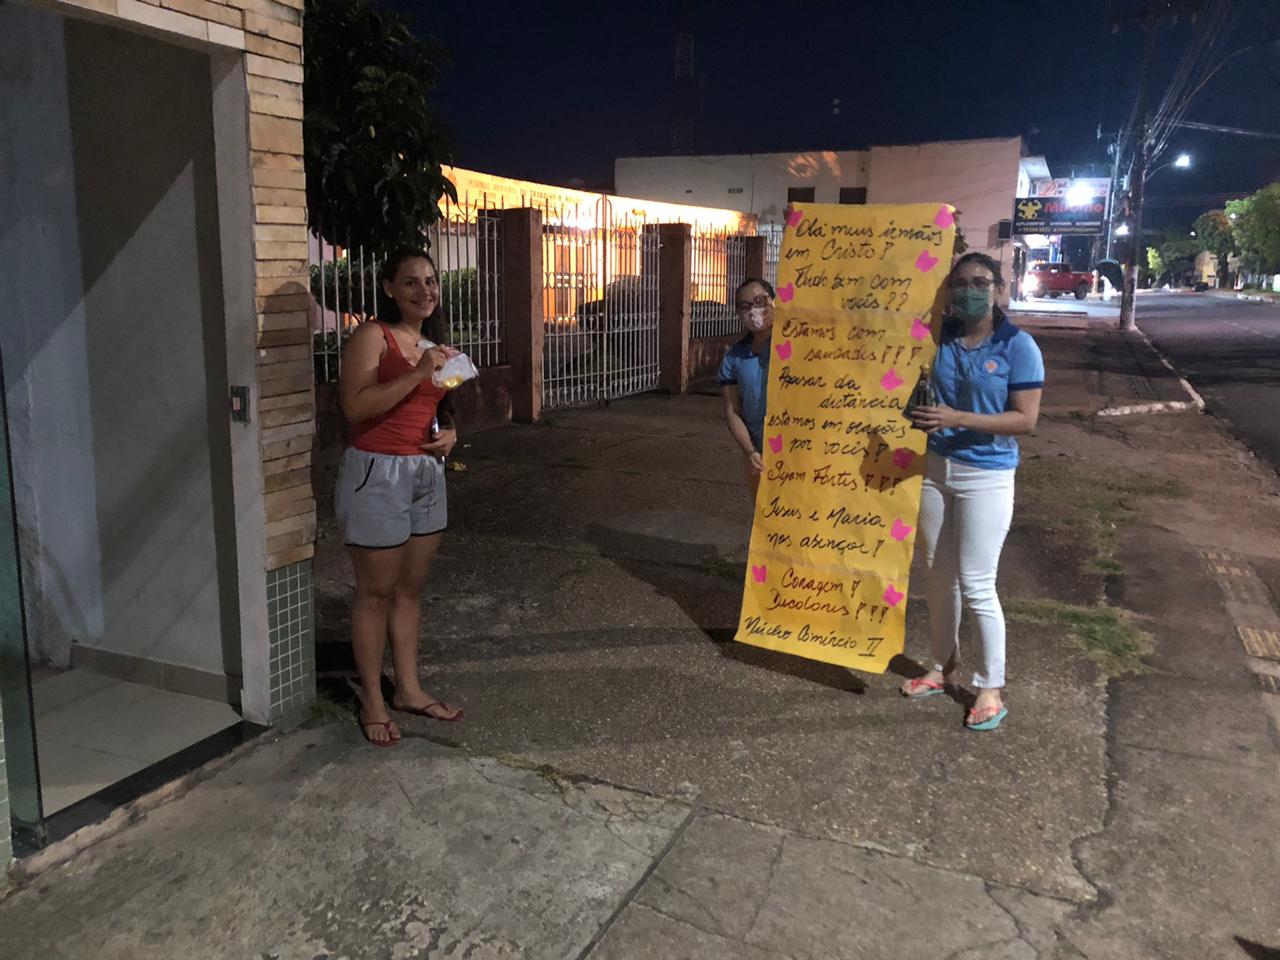 Olá meus irmãos
em Cristo!
Tudo bem com
vocês??
Estamos com
saudades!!!
Apesar da
distância
estamos em orações
por vocês!
Sejam Fortes!!!
Jesus e Maria
nos abençoe!
Coragem!
Decolores!!!
Núcleo Comércio II